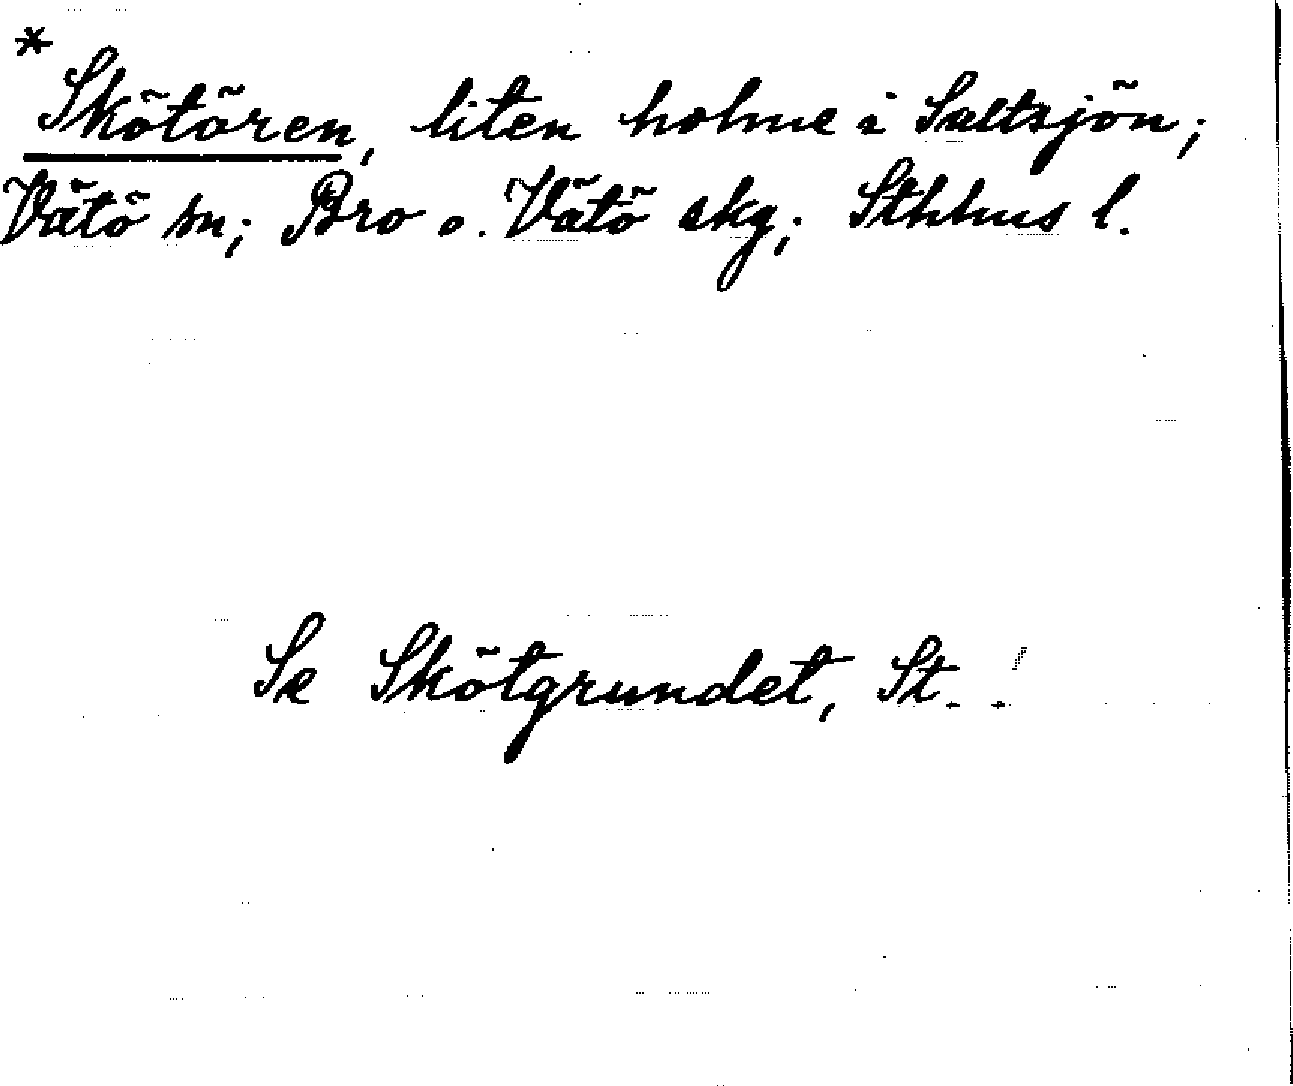 *
Skötören, liten holme i Saltsjön;
Vätö sn; Bro o. Vätö skg; Sthlms l.
Se Skötgrundet, St. !